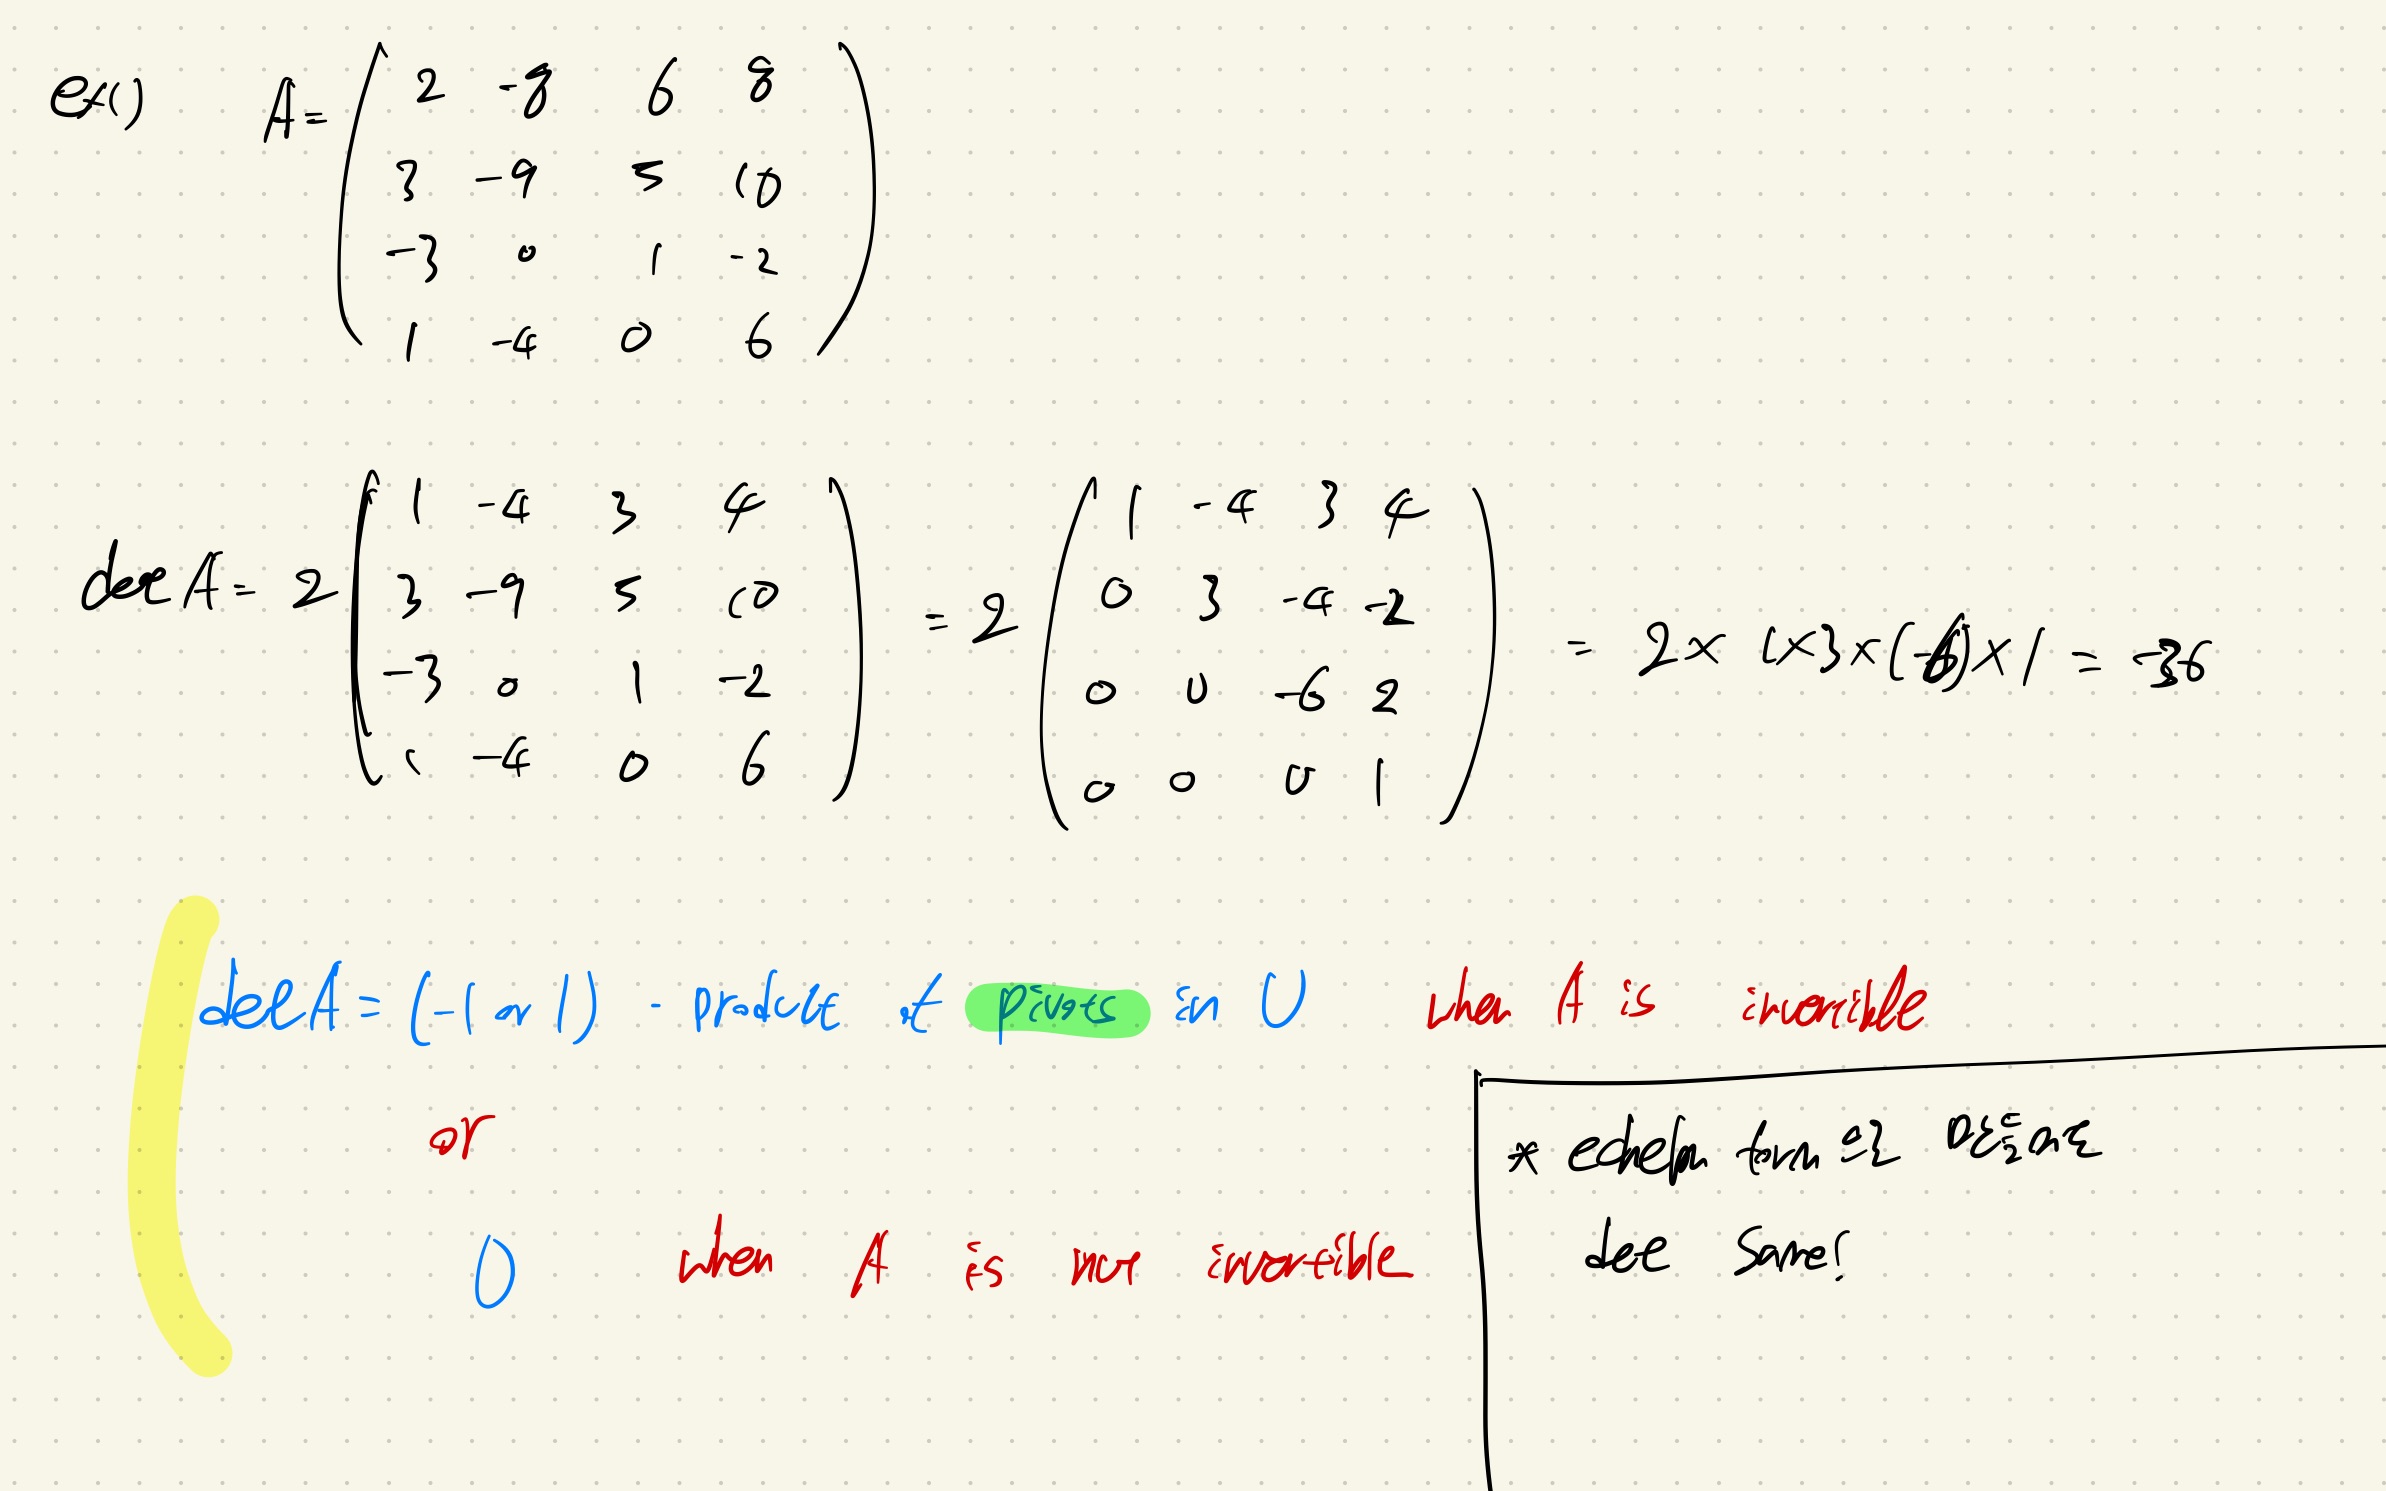 ex1) A = ( 2 -8 6 8
3 -9 5 10
-3 0 1 -2
1 -4 0 6 )
det A = 2 ( 1 -4 3 4
3 -9 5 10
-3 0 1 -2
1 -4 0 6 ) = 2 ( 1 -4 3 4
0 3 -4 -2
0 0 -6 2
0 0 0 1 ) = 2 × 1 × 3 × (-6) × 1 = -36
det A = (-1 or 1) · product of pivots in U when A is invertible
or
0 when A is not invertible
* echelon form
det same!